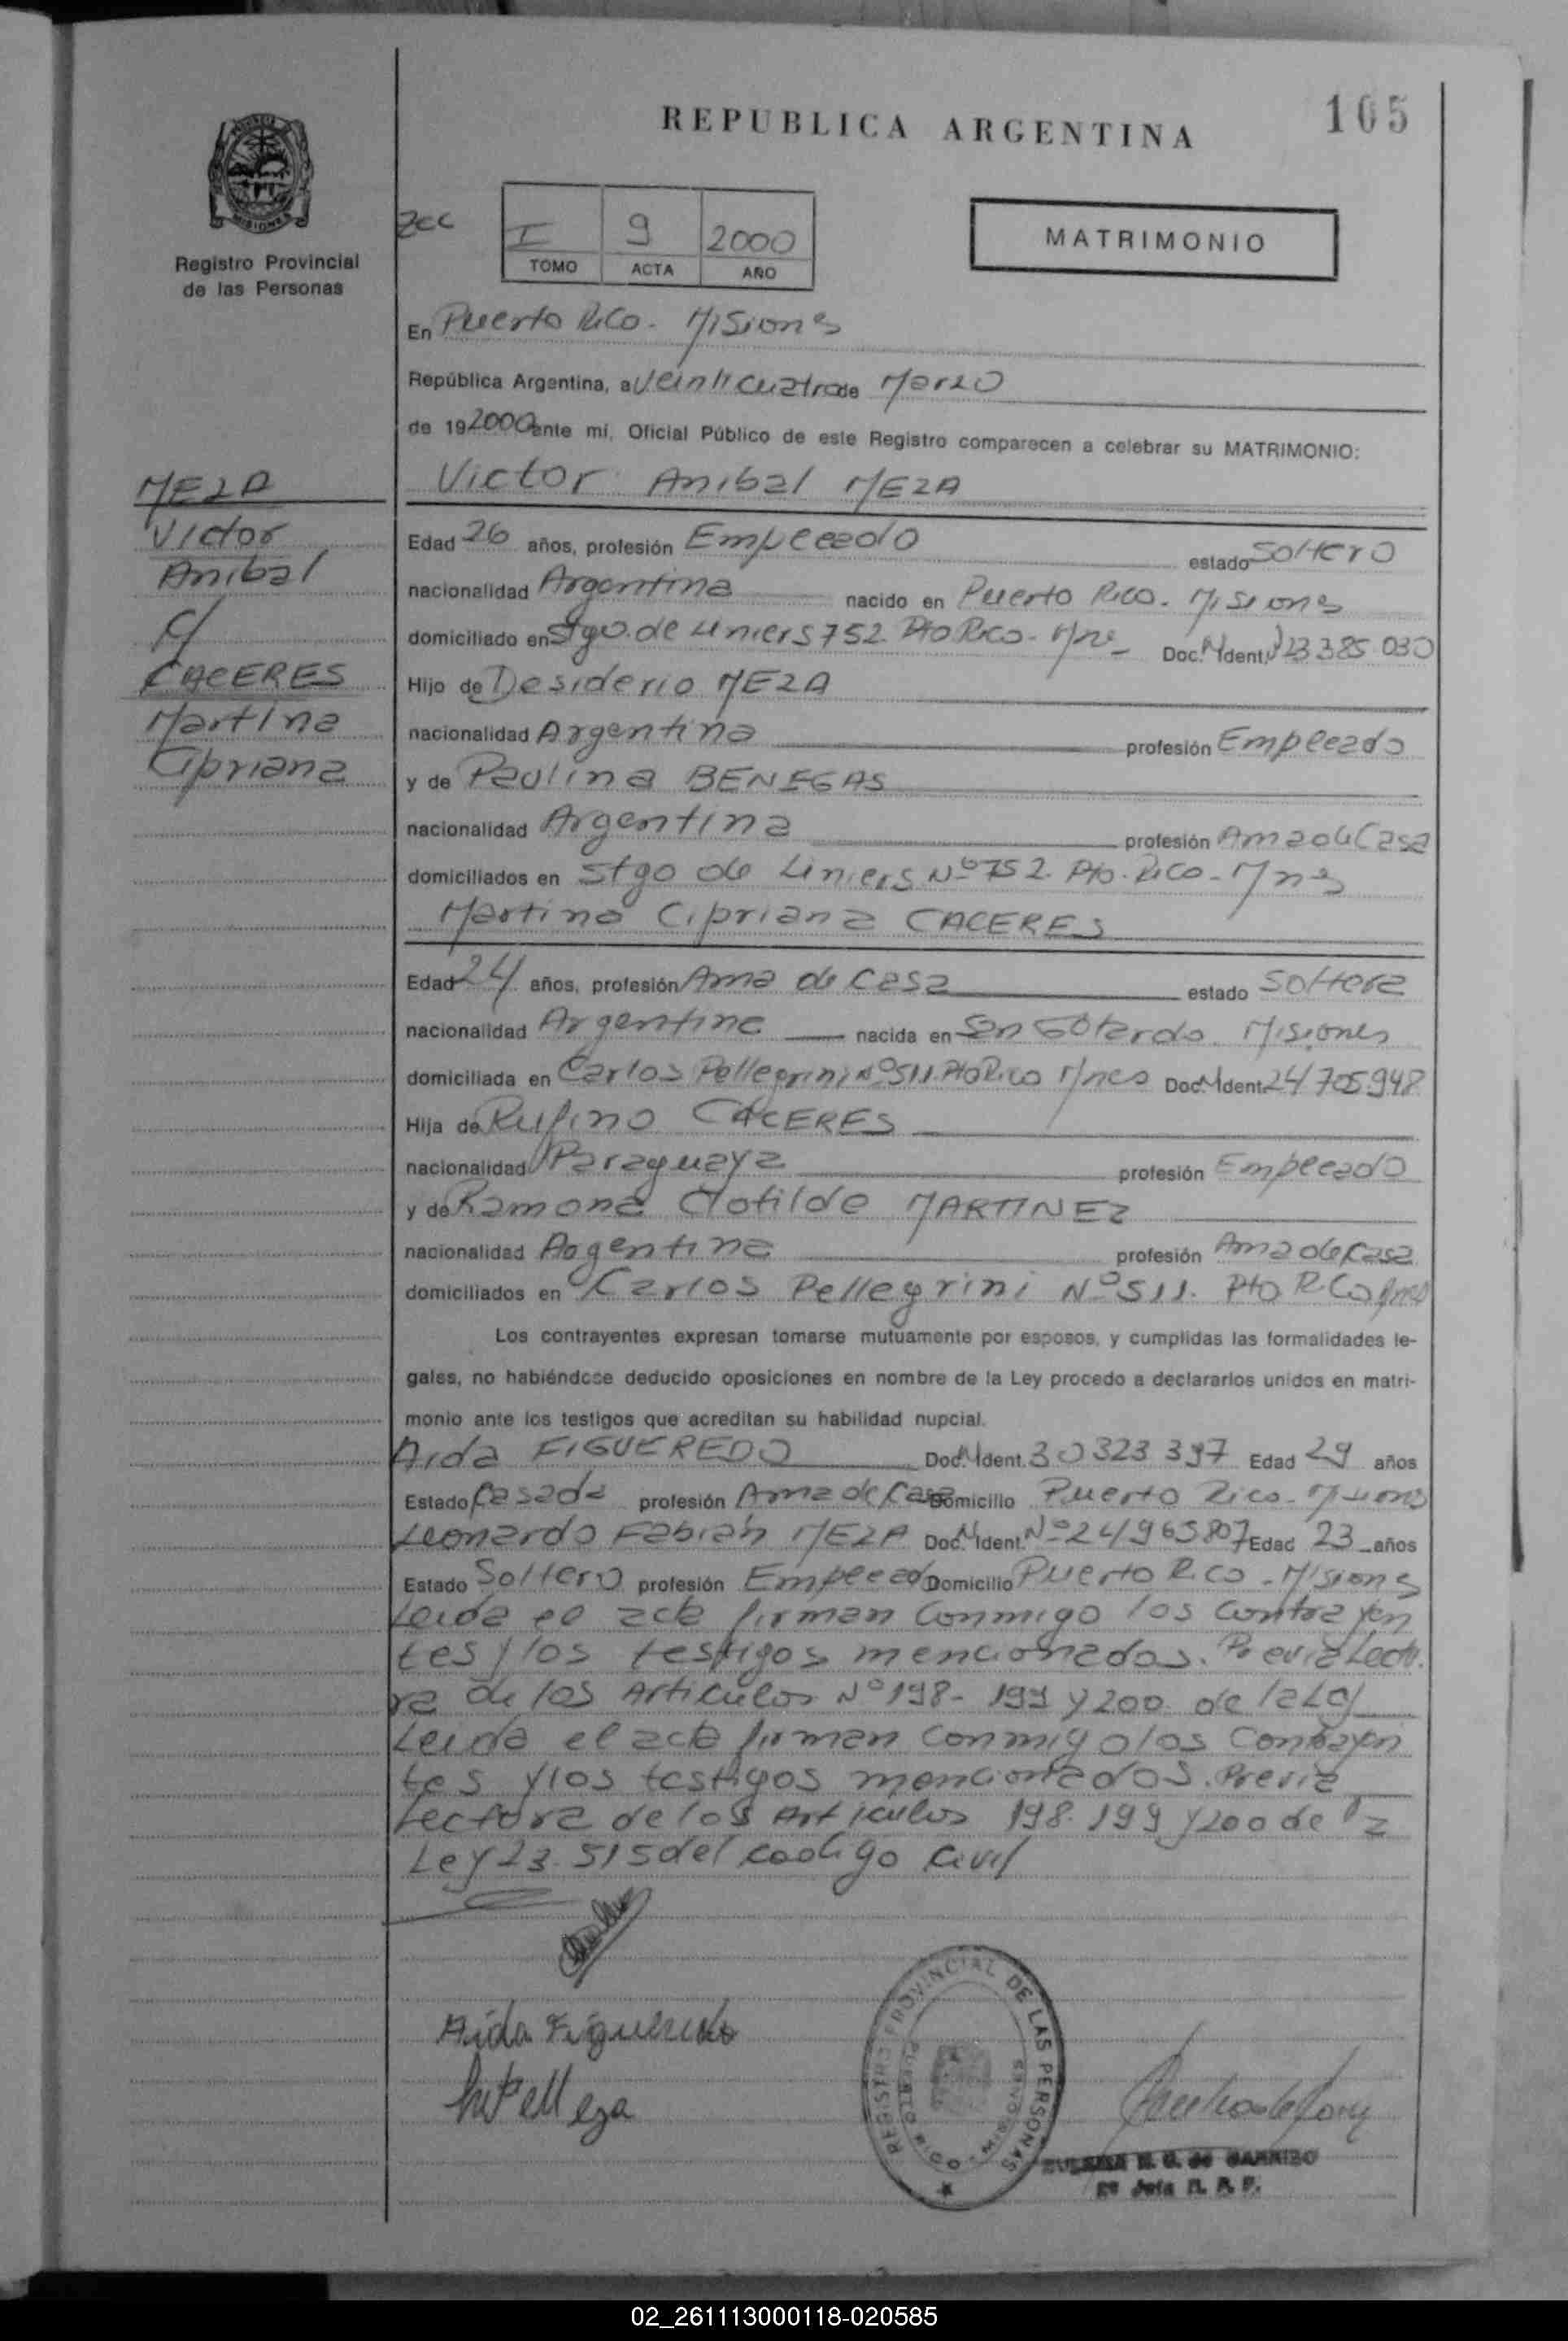 REPUBLICA ARGENTINA
105
Registro Provincial
de las Personas
I 9 2000
TOMO ACTA AÑO
MATRIMONIO
En Puerto Rico. Misiones
República Argentina, a Veinticuatro de Marzo
de 19 2000 ante mí, Oficial Público de este Registro comparecen a celebrar su MATRIMONIO:
MEZA
Victor
Anibal
C/
CACERES
Martina
Cipriana
Victor Anibal MEZA
Edad 26 años, profesión Empleado estado Soltero
nacionalidad Argentina nacido en Puerto Rico. Misiones
domiciliado en Stgo. de Liniers 752 Pto Rico - Mnes Doc. N Ident. 23 385 030
Hijo de Desiderio MEZA
nacionalidad Argentina profesión Empleado
y de Paulina BENEGAS
nacionalidad Argentina profesión Ama de Casa
domiciliados en Stgo de Liniers Nº 752. Pto. Rico - Mnes
Martina Cipriana CACERES
Edad 24 años, profesión Ama de Casa estado Soltera
nacionalidad Argentina nacida en San Gotardo. Misiones
domiciliada en Carlos Pellegrini Nº 511. Pto Rico Mnes Doc. N Ident. 24 705.948
Hija de Rufino CACERES
nacionalidad Paraguaya profesión Empleado
y de Ramona Clotilde MARTINEZ
nacionalidad Argentina profesión Ama de Casa
domiciliados en Carlos Pellegrini Nº 511. Pto Rico Mnes
Los contrayentes expresan tomarse mutuamente por esposos, y cumplidas las formalidades le-
gales, no habiéndose deducido oposiciones en nombre de la Ley procedo a declararlos unidos en matri-
monio ante los testigos que acreditan su habilidad nupcial.
Aida FIGUEREDO Doc. N Ident. 30 323 397 Edad 29 años
Estado Casada profesión Ama de Casa Domicilio Puerto Rico - Misiones
Leonardo Fabián MEZA Doc. N Ident. Nº 24 965 807 Edad 23 años
Estado Soltero profesión Empleado Domicilio Puerto Rico - Misiones
Leida el acta firman conmigo los contrayen
tes y los testigos mencionados. Previa Lectu
ra de los Articulos Nº 198 - 199 y 200 de la Ley
Leida el acta firman conmigo los Contrayen
tes y los testigos mencionados. Previa
Lectura de los Articulos 198. 199 y 200 de la
Ley 23.515 del codigo Civil
Aida Figueredo
REGISTRO PROVINCIAL DE LAS PERSONAS
PUERTO RICO - MISIONES
02_261113000118-020585